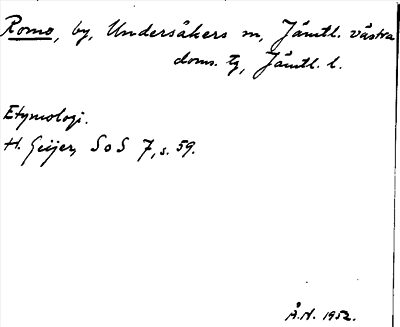 Romo, by, Undersåkers sn, Jämtl. västra
doms. tg, Jämtl. l.
Etymologi.
H. Geijer, SoS 7, s. 59.
Å.N. 1952.